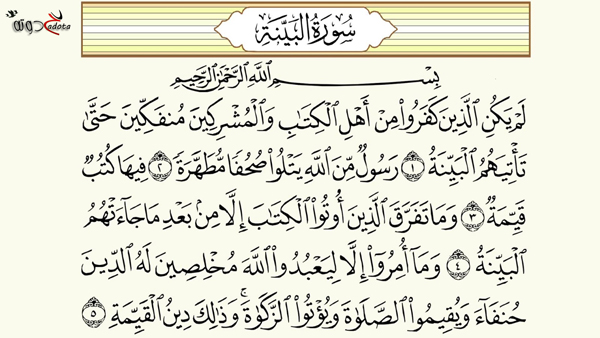 سُورَةُ الْبَيِّنَةِ
بِسْمِ اللَّهِ الرَّحْمَٰنِ الرَّحِيمِ
لَمْ يَكُنِ الَّذِينَ كَفَرُوا مِنْ أَهْلِ الْكِتَابِ وَالْمُشْرِكِينَ مُنفَكِّينَ حَتَّىٰ
تَأْتِيَهُمُ الْبَيِّنَةُ ١ رَسُولٌ مِّنَ اللَّهِ يَتْلُوا صُحُفًا مُّطَهَّرَةً ٢ فِيهَا كُتُبٌ
قَيِّمَةٌ ٣ وَمَا تَفَرَّقَ الَّذِينَ أُوتُوا الْكِتَابَ إِلَّا مِنْ بَعْدِ مَا جَاءَتْهُمُ
الْبَيِّنَةُ ٤ وَمَا أُمِرُوا إِلَّا لِيَعْبُدُوا اللَّهَ مُخْلِصِينَ لَهُ الدِّينَ
حُنَفَاءَ وَيُقِيمُوا الصَّلَوٰةَ وَيُؤْتُوا الزَّكَوٰةَ ۚ وَذَٰلِكَ دِينُ الْقَيِّمَةِ ٥